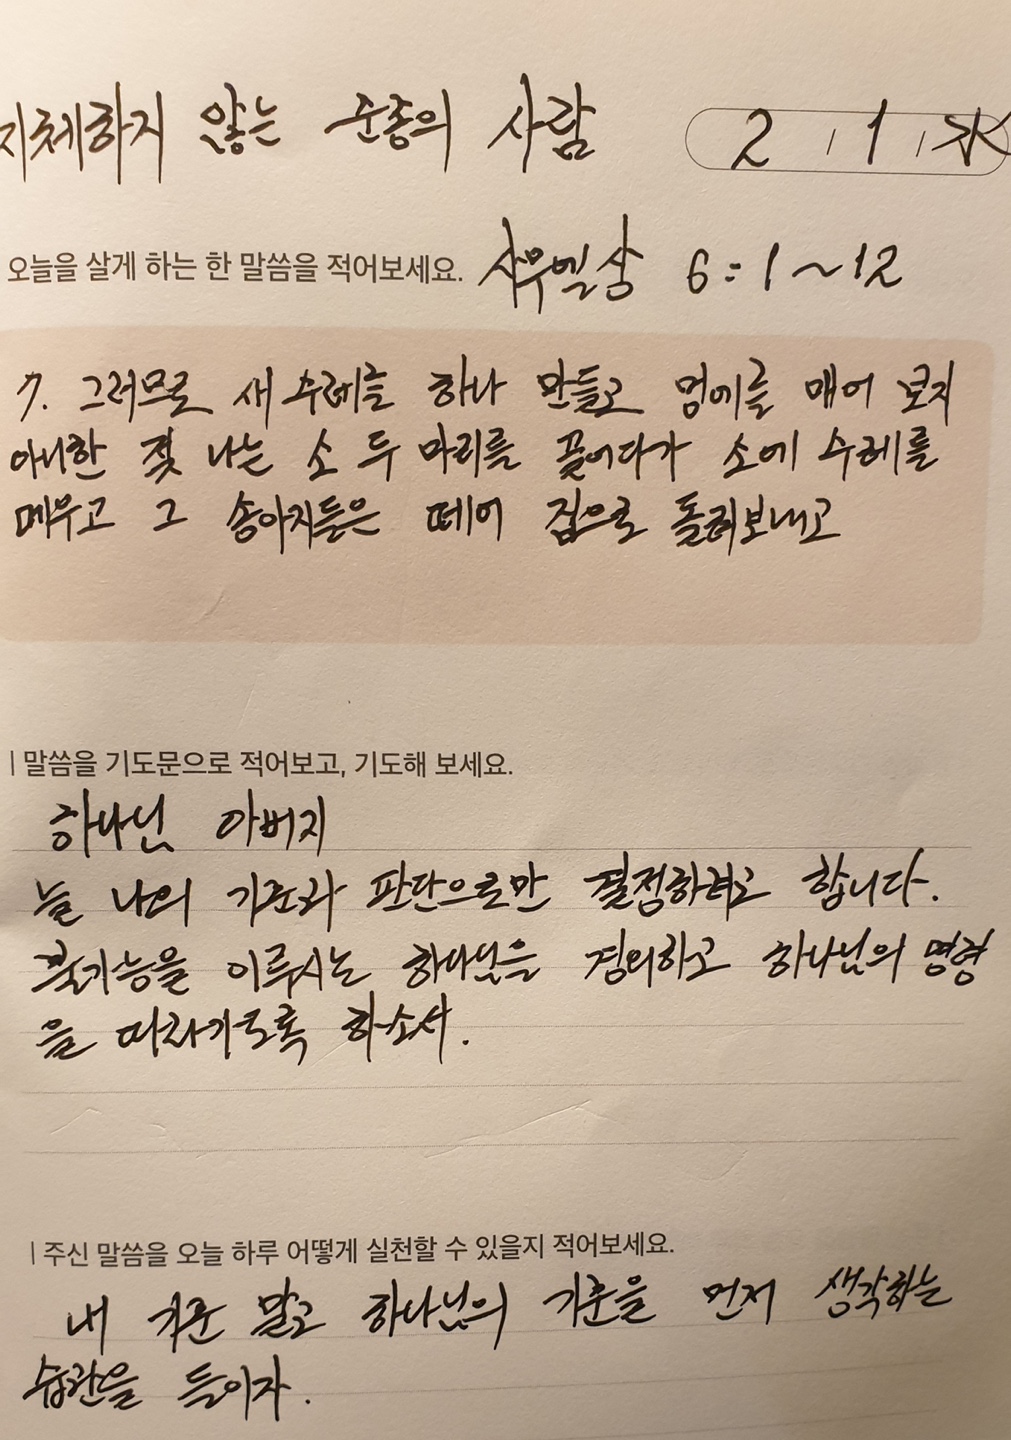 지체하지 않는 순종의 사람 2 / 1 / 水
오늘을 살게 하는 한 말씀을 적어보세요. 사무엘상 6:1~12
7. 그러므로 새 수레를 하나 만들고 멍에를 매어 보지
아니한 젖 나는 소 두 마리를 끌어다가 소에 수레를
메우고 그 송아지들은 떼어 집으로 돌려보내고
| 말씀을 기도문으로 적어보고, 기도해 보세요.
하나님 아버지
늘 나의 기준과 판단으로만 결정하려고 합니다.
불가능을 이루시는 하나님을 경외하고 하나님의 명령
을 따라가도록 하소서.
| 주신 말씀을 오늘 하루 어떻게 실천할 수 있을지 적어보세요.
내 기준 말고 하나님의 기준을 먼저 생각하는
습관을 들이자.